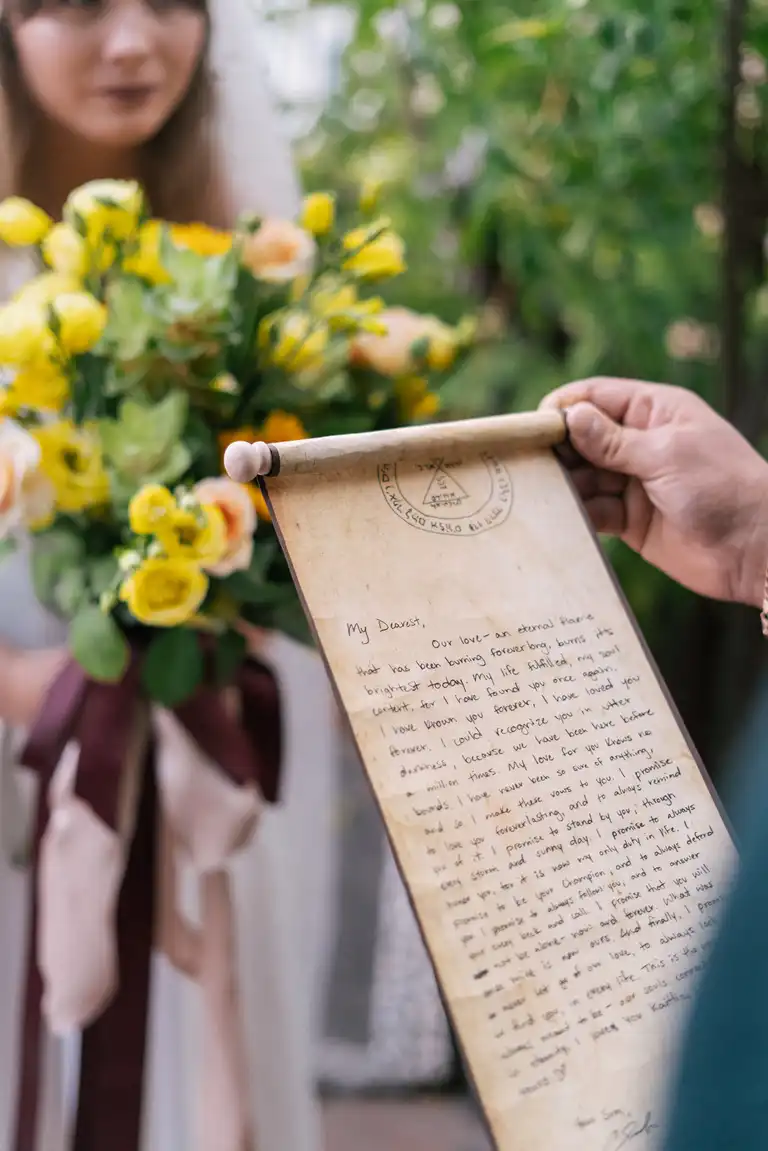 My Dearest,
Our love - an eternal flame
that has been burning foreverlong, burns its
brightest today. My life fulfilled, my soul
content, for I have found you once again.
I have known you forever, I have loved you
forever. I could recognize you in utter
darkness, because we have been here before
a million times. My love for you knows no
bounds. I have never been so sure of anything,
and so I make these vows to you. I promise
to love you foreverlasting, and to always remind
you of it. I promise to stand by you, through
every storm and sunny day. I promise to always
you, for it is now my only duty in life. I
promise to be your Champion, and to always defend
you. I promise to always follow you, and to answer
your every beck and call. I promise that you will
not be alone - now and forever. What was
once mine is now ours. And finally, I
never let go of our love, to always
find you, in every life. This is the
meant to be - our souls
eternity. I